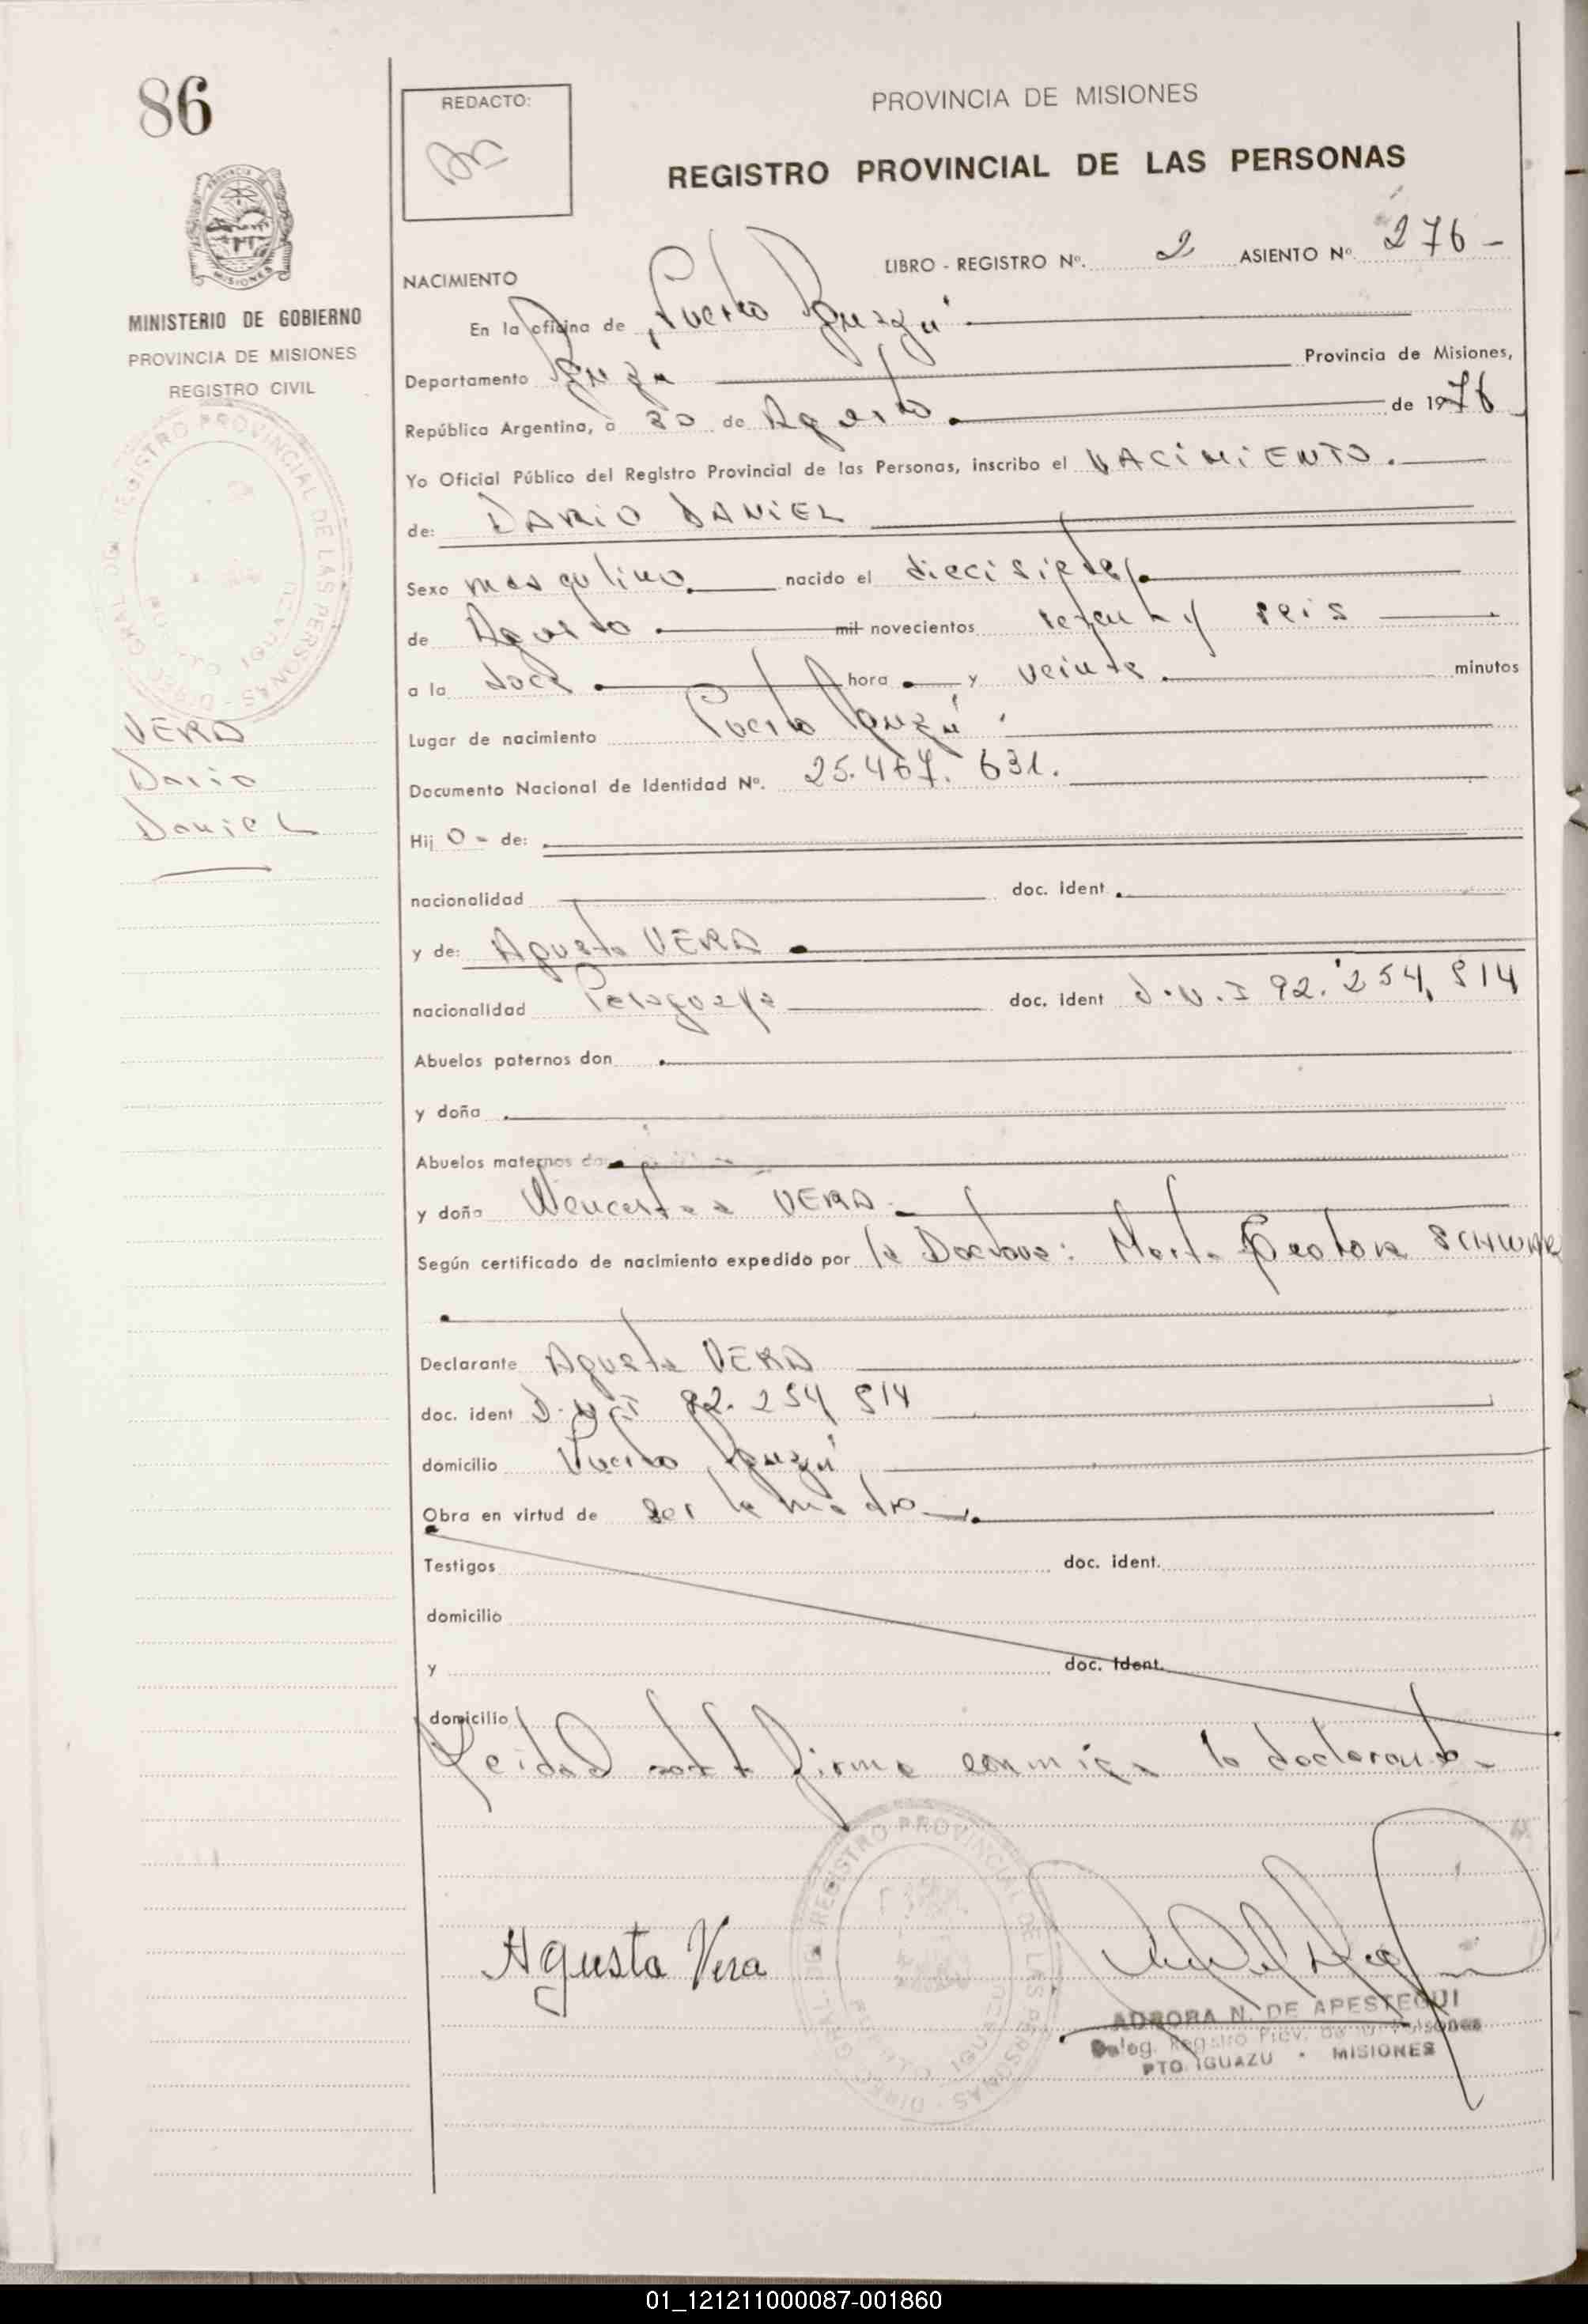 86
REDACTO:
PROVINCIA DE MISIONES
REGISTRO PROVINCIAL DE LAS PERSONAS
MINISTERIO DE GOBIERNO
PROVINCIA DE MISIONES
REGISTRO CIVIL
VERA
Dario
Daniel
NACIMIENTO
LIBRO - REGISTRO Nº. 2 ASIENTO Nº 276 -
En la oficina de Puerto Iguazú
Departamento Iguazú Provincia de Misiones,
República Argentina, a 30 de Agosto de 1976
Yo Oficial Público del Registro Provincial de las Personas, inscribo el NACIMIENTO.
de: DARIO DANIEL
Sexo masculino nacido el diecisiete
de Agosto mil novecientos setenta y seis
a la doce hora y veinte minutos
Lugar de nacimiento Puerto Iguazú
Documento Nacional de Identidad Nº. 25.467.631.
Hij o - de:
nacionalidad doc. ident.
y de: Agusta VERA
nacionalidad Paraguaya doc. ident D.N.I 92.254,814
Abuelos paternos don
y doña
Abuelos maternos don
y doña VERA
Según certificado de nacimiento expedido por la Doctora: Marta
Declarante Agusta VERA
doc. ident D.N.I 92.254 814
domicilio Puerto Iguazú
Obra en virtud de ser la madre
Testigos doc. ident.
domicilio
y doc. ident.
domicilio
Leida el acta firma conmigo la declarante
Agusta Vera
AURORA N. DE APESTEGUI
Deleg. Registro Prov. de las Personas
PTO. IGUAZU • MISIONES
01_121211000087-001860